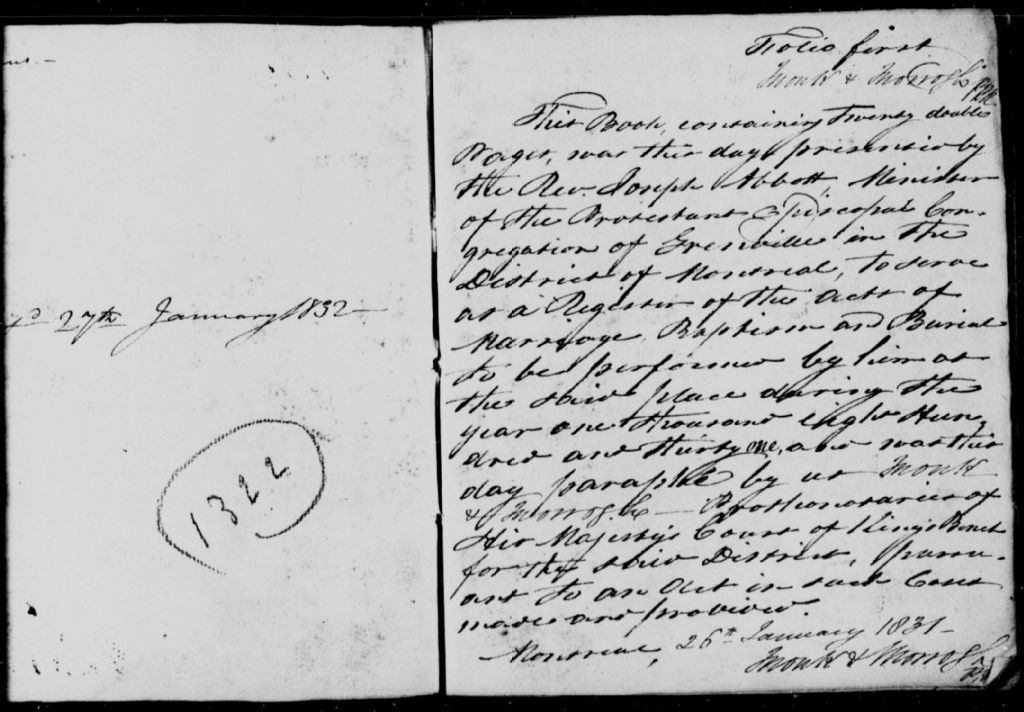 27th January 1832
1322
Folio first
Monk & Morrogh
This Book, containing Twenty double
Pages, was this day presented by
the Rev. Joseph Abbott, Minister
of the Protestant Episcopal Con-
gregation of Grenville in the
District of Montreal, to serve
as a Register of the Acts of
Marriage, Baptism and Burial
to be performed by him at
the said place during the
year one thousand eight Hun-
dred and thirty one, and was this
day paraphé by us Monk
& Morrogh — Prothonotaries of
His Majesty's Court of King's Bench
for the said District, pursu-
ant to an Act in such Cases
made and provided.
Montreal, 26th January 1831-
Monk & Morrogh